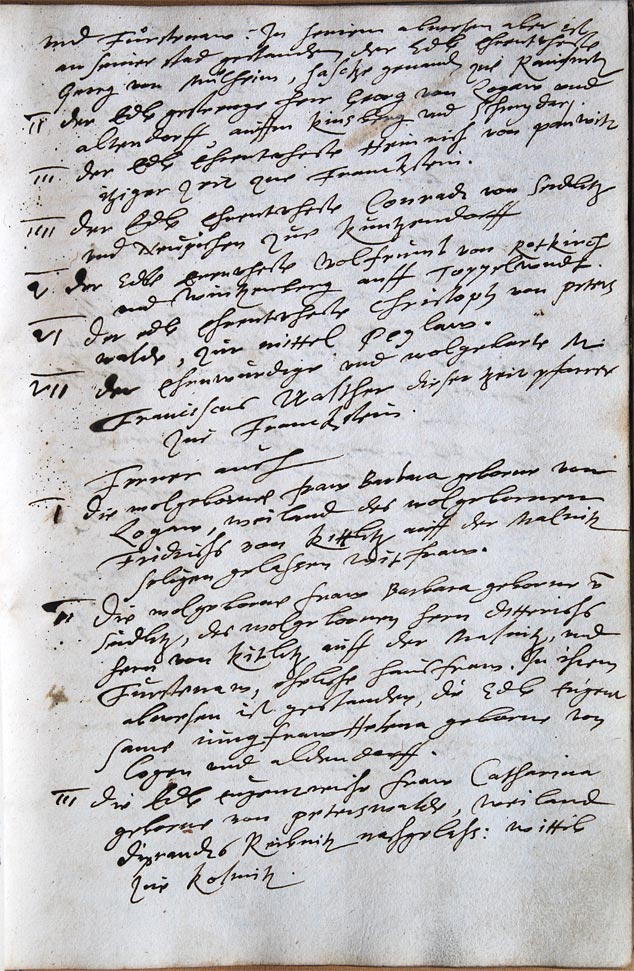 und Fürstenaw. In seinem abwesen aber ist
an seiner stad gestanden der Edle Ehrentveste
Georg von Mülheim, genand zue
II der Edle gestrenge Herr Georg von Logaw und
altendorff auffm Kinsberg und
III der Edle Ehrentveste Heinrich von panwitz
itziger Zeit zue Franckstein.
IIII der Edle Ehrentveste Conrad von Seidlitz
und zue Kuntzendorff
V der Edle Ehrenveste Wolfrumb von Rotkirch
und auff
VI der edle Ehrentveste Christoph von peters
walde, zur mittel Peylaw.
VII der Ehrwürdige und wolgelarte M.
Franciscus Walther dieser Zeit pfarrer
zue Franckstein.
Ferner auch
I die wolgeborne fraw Barbara geborne von
Logaw, weiland des wolgebornen
Fridrichs von Kittlitz auff der Malnitz
seligen gelassen witfraw.
II Die wolgeborne fraw Barbara geborne v
Seidlitz, des wolgebornen hern Ditterichs
hern von Kitlitz auff der Malnitz, und
Fürstenaw, eheliche hausfraw. In ihrem
abwesen ist gestanden, die Edle tugent
same jungfraw Helena geborne von
Logaw und aldendorff.
III die Edle tugentreiche fraw Catharina
geborne von peterswalde, weiland
Reibnitz nachgelass: wittib
zue